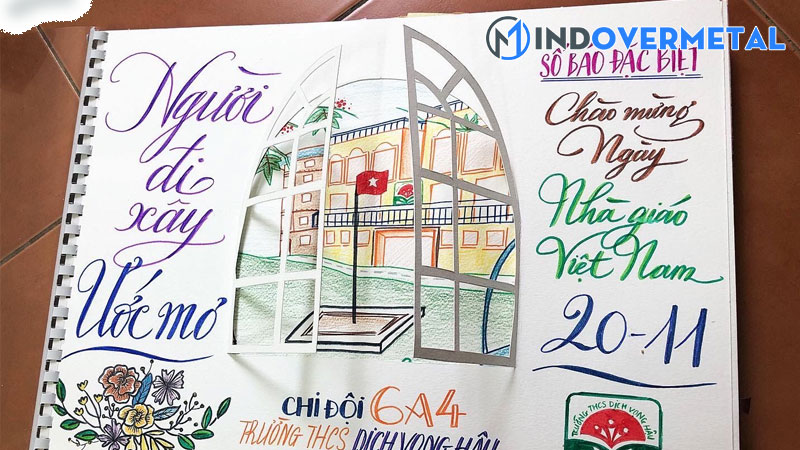 MINDOVERMETAL
Người
đi
xây
Ước mơ
SỐ BÁO ĐẶC BIỆT
Chào mừng
Ngày
Nhà giáo
Việt Nam
20-11
CHI ĐỘI 6A4
TRƯỜNG THCS DỊCH VỌNG HẬU
TRƯỜNG THCS DỊCH VỌNG HẬU